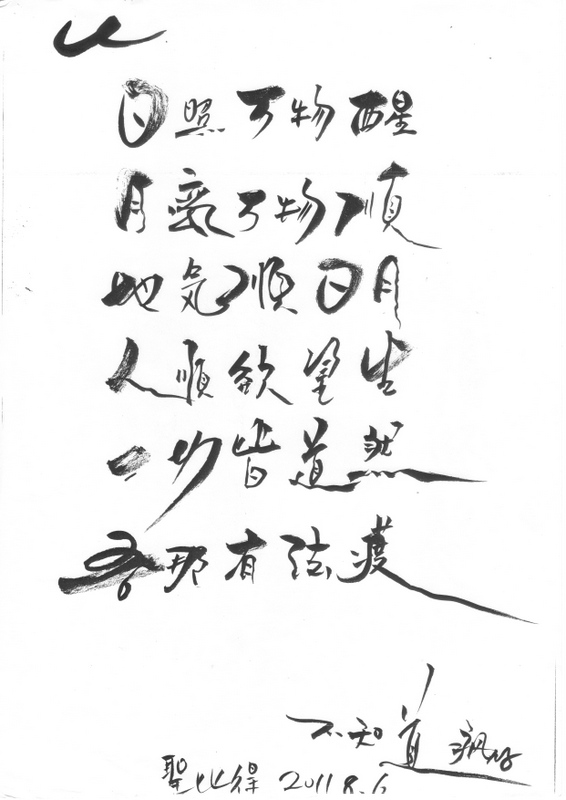 日照万物醒
月亮万物順
地気順日月
人順欲望生
一切皆道然
吾那有法
不知道
聖比得 2011 8.6